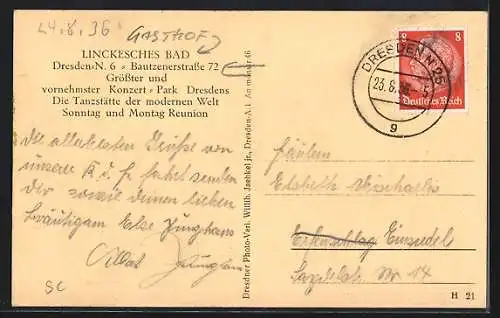 24.8.36 GASTHOF
LINCKESCHES BAD
Dresden-N. 6 * Bautzenerstraße 72
Größter und
vornehmster Konzert * Park Dresdens
Die Tanzstätte der modernen Welt
Sonntag und Montag Reunion
Die allerbesten Grüße von
unserer K. d. F. fahrt senden
Dir sowie deinen lieben
Bräutigam Else Junghans
Junghans
SC
Dresdner Photo-Verl. Willib. Jaehkel jr., Dresden-A. 1 Ammonstr. 46
DRESDEN N 25
23.8.36
9
8 8
Deutsches Reich
Fräulein
Elsbeth
Erfenschlag Einsiedel
Nr 14
H 21